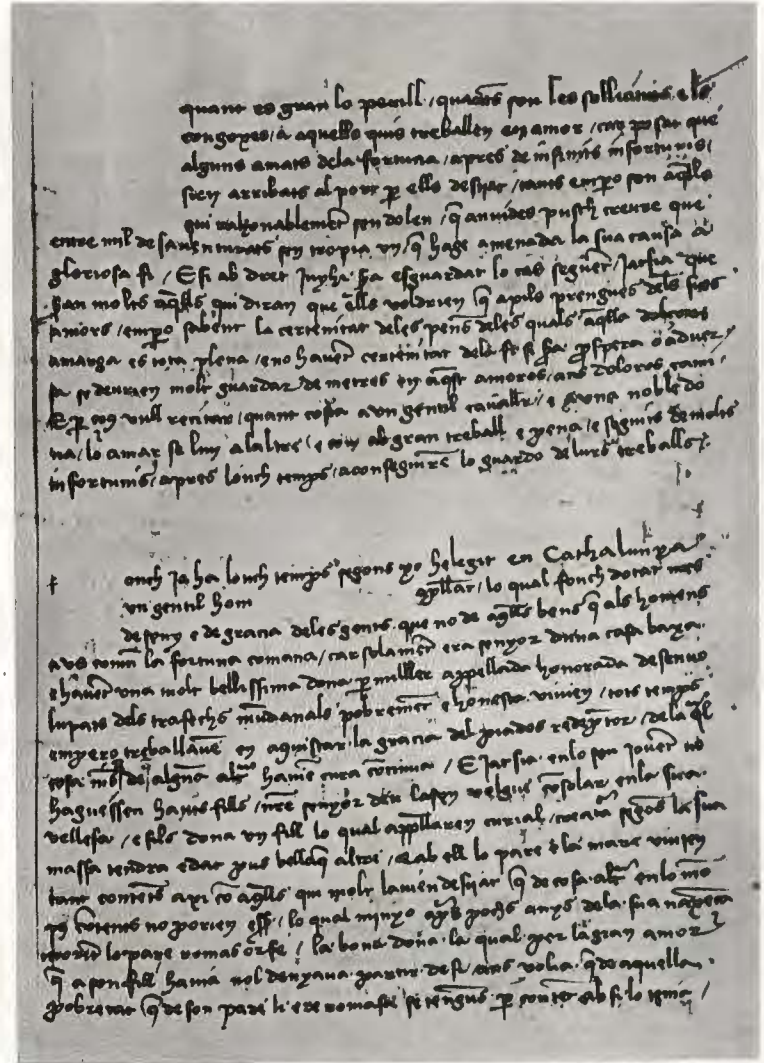 quant es gran lo perill / quantes son les sollicituts e les
congoxes / a aquells quis treballen en amor / car posat que
alguns amats dela fortuna / apres de infinits infortunis /
sien arribats al port per ells desijat / tants empero son aq̄lls
qui rahonablemēt sen dolen / q̄ anvides pusch creure que
entre mil desaventurats sen trop̄ia vn / q̄ hage amenada la sua causa a
gloriosa fi / E si ab dret juyhi sera esguardat lo cas seguēt / jatsia que
seran molts aq̄lls qui diran que ells voldrien q̄ axils prengues dels seus
amors / empero sabent la certenitat deles penes deles quals aq̄lla dolcor
amarga es tota plena / e no havēt certenitat dela fi si sera prospera o adver
sa se deurien molt guardar de metres en aq̄st amoros / ans doloros cami /
E per co us vull recitar / quant costa a un gentil cavaller / e a una noble do
na / lo amar se lun alaltre / e com ab gran treball e pena / e seguits de molts
infortunis / apres lonch temps / aconseguirē lo guardo de lurs treballs
onch ja ha lonch temps segons yo he legit en Cathalunya
vn gentil hom ap̄llat / lo qual fonch dotat mes
de seny e de gracia deles gents que no de aq̄lls bens q̄ als homens
avs comu la fortuna comana / car solamēt era senyor duna casa baxa
e havēt una molt bellissima dona per muller appellada honorada desenvo
lupats dels trafechs mūdanals pobremēt e honesta vivien / tots temps
empero treballavē en aquistar la gracia del piados redēptor / dela q̄l
cosa mes de alguna altra havie cura cōtinua / E jatsia en lo son jovēt no
haguessen hauts fills / n̄re senyor deu lassen volgue cōsolar en la sua
vellesa / e fils dona vn fill lo qual appellaren curial / creatura segons la sua
massa tendra edat pus bella q̄ altre / E ab ell lo pare e la mare vivien
tant contēts axi co aq̄lls qui molt lavien desijat q̄ de cosa altra en lo mō
pus cōtents no porien esser / lo qual minyo apres pochs anys dela sua naxença
mort lo pare romas orfe / la bona dona la qual per la gran amor
q̄ a son fill havia nol denyava partir de si ans volia q̄ de aquella
pobretat q̄ de son pare li ere romasa se tengues per content ab si lo tenia /